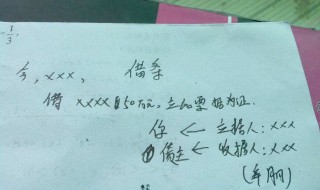 1/3,
今,xxx, 借条
借xxxx 150万元,立此要据为证.
你 ← 立据人:xxx
借主 ← 收据人:xxx
(年月日)